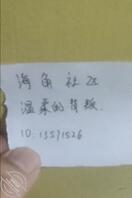 海角社区
温柔的背叛.
ID:13591526